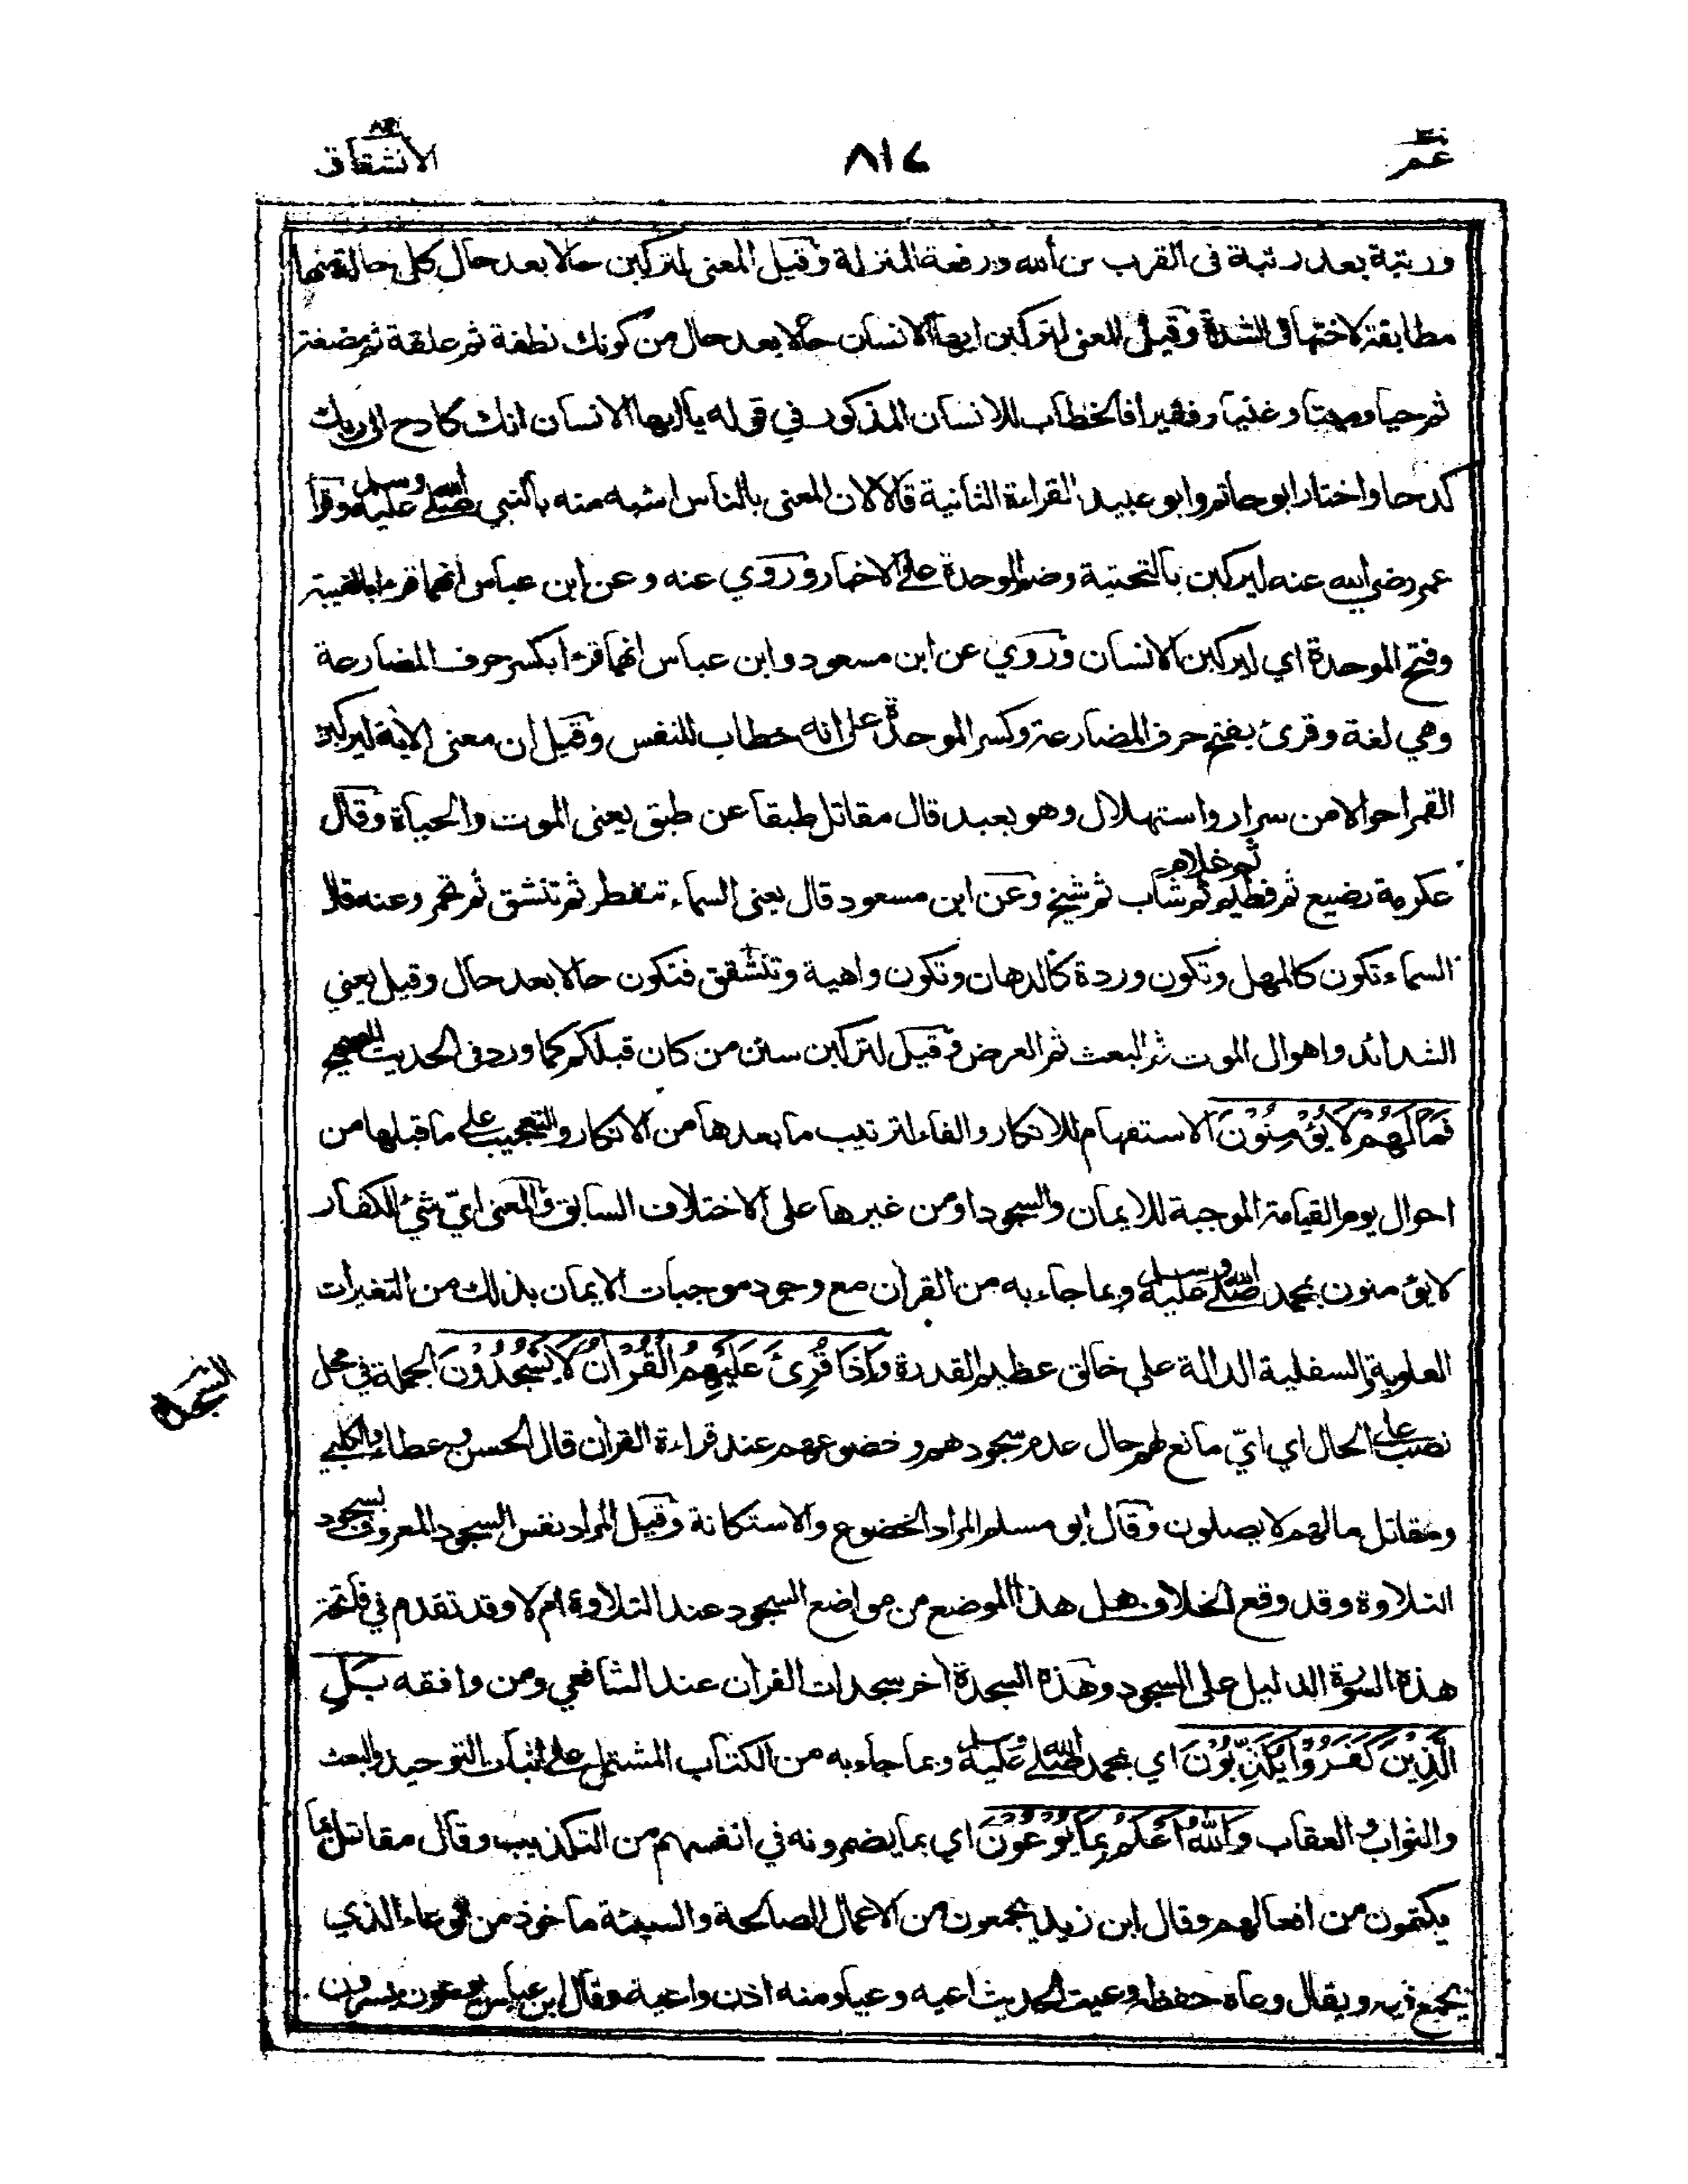 عم ٣٠
٨١٤
الانشقاق ٨٤
ورتبة بعد رتبة في القرب من الله ورفعة المنزلة وقيل المعنى لتركبن حالا بعد حال كل حالة منها
مطابقة لاختها في الشدة وقيل المعنى لتركبن ايها الانسان حالا بعد حال من كونك نطفة ثم علقة ثم مضغة
ثم حيا وميتا وغنيا وفقيرا فالخطاب للانسان المذكور في قوله يا ايها الانسان انك كادح الى ربك
كدحا واختار ابو حاتم وابو عبيد القراءة الثانية قالا لان المعنى بالناس اشبه منه بالنبي صلى الله عليه وسلم وقرأ
عمر رضي الله عنه ليركبن بالتحتية وضم الموحدة على الاخبار وروي عنه وعن ابن عباس انهما قرءا بالغيبة
وفتح الموحدة اي ليركبن الانسان وروي عن ابن مسعود وابن عباس انهما قرءا بكسر حرف المضارعة
وهي لغة وقرئ بفتح حرف المضارعة وكسر الموحدة على انه خطاب للنفس وقيل ان معنى الآية ليركبن
القمر احوالا من سرار واستهلال وهو بعيد قال مقاتل طبقا عن طبق يعنى الموت والحياة وقال
عكرمة رضيع ثم فطيم ثم غلام ثم شاب ثم شيخ وعن ابن مسعود قال يعنى السماء تنفطر ثم تنشق ثم تحمر وعنه قال
السماء تكون كالمهل وتكون وردة كالدهان وتكون واهية وتنشقق فتكون حالا بعد حال وقيل يعني
الشدائد واهوال الموت ثم البعث ثم العرض وقيل لتركبن سنن من كان قبلكم كما ورد في الحديث الصحيح
فَمَا لَهُمْ لَا يُؤْمِنُوْنَ الاستفهام للانكار والفاء لترتيب ما بعدها من الانكار والتعجيب على ما قبلها من
احوال يوم القيامة الموجبة للايمان والسجود او من غيرها على الاختلاف السابق والمعنى ايّ شيء للكفار
لا يؤمنون بمحمد صلى الله عليه وسلم وبما جاء به من القرآن مع وجود موجبات الايمان بذلك من التغيرات
العلوية والسفلية الدالة على خالق عظيم القدرة وَاِذَا قُرِئَ عَلَيْهِمُ الْقُرْاٰنُ لَا يَسْجُدُوْنَ الجملة في محل
السجدة
نصب على الحال اي ايّ مانع لهم حال عدم سجودهم وخضوعهم عند قراءة القرآن قال الحسن وعطاء والكلبي
ومقاتل مالهم لا يصلون وقال ابو مسلم المراد الخضوع والاستكانة وقيل المراد نفس السجود المعروف بسجود
التلاوة وقد وقع الخلاف هل هذا الموضع من مواضع السجود عند التلاوة ام لا وقد تقدم في فاتحة
هذه السورة الدليل على السجود وهذه السجدة آخر سجدات القرآن عند الشافعي ومن وافقه بَلِ
الَّذِيْنَ كَفَرُوْا يُكَذِّبُوْنَ اي بمحمد صلى الله عليه وسلم وبما جاء به من الكتاب المشتمل على اثبات التوحيد والبعث
والثواب والعقاب وَاللّٰهُ اَعْلَمُ بِمَا يُوْعُوْنَ اي بما يضمرونه في انفسهم من التكذيب وقال مقاتل بما
يكتمون من افعالهم وقال ابن زيد يجمعون من الاعمال الصالحة والسيئة ماخوذ من الوعاء الذي
يجمع فيه ويقال وعاه حفظه ووعيت الحديث اعيه وعيا ومنه اذن واعية وقال ابن عباس يوعون يسرون